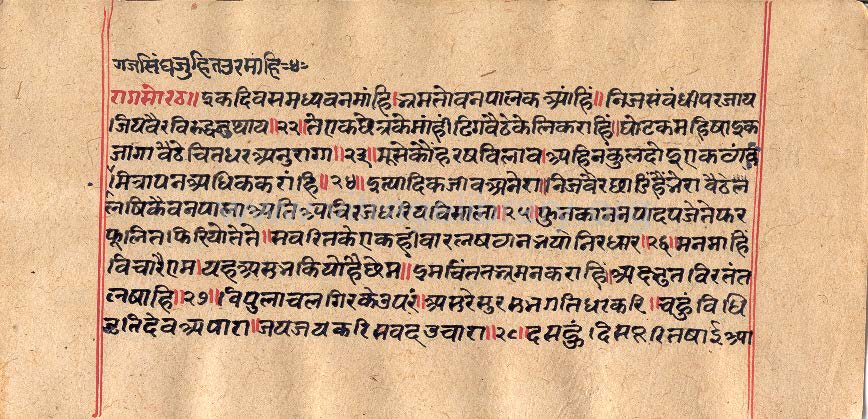 गजसिंघजुहितउरमांहि-४-
रागसोरठ॥ इकदिवसमध्यवनमांहि। भ्रमतोवनपालकआंहि॥ निजसंबंधीपरजाय
जियवैरविरुद्धजुथाय॥२२॥ तेएकछेत्रकेमांही ढिगवैठेकेलिकराहिं॥ घोटकमहिषाइक
जागा वैठेचितधरअनुरागा॥२३॥ मूसेकौहरषविलाव। अहिनकुलदोइएकठांव
मित्रापनअधिककरांहि॥२४॥ इत्यादिकजीवअनेरा। निजवैरछाडिहैनेरा वैठेल
लषिकैवनपाला अति विरजधरियविसाला॥२५॥ फुनकाननपादपजेते फर
फूलितफिरियोतेते॥ सवरितकेएकहीवार लषठानभयोनिरधार॥२६॥ मनमाहि
विचारैएम। यहअसुभकियौहैछेम॥ इमचिंततभ्रमनकराहि। अदभुतविरतंत
लषाहि॥२७॥ विपुलाचलगिरकेउपरं। असुरेसुर करि। चहुं विधि
जुतिदेवअपारा॥ जयजयकरिसवदउचारा॥२८॥ दसहुं दिस